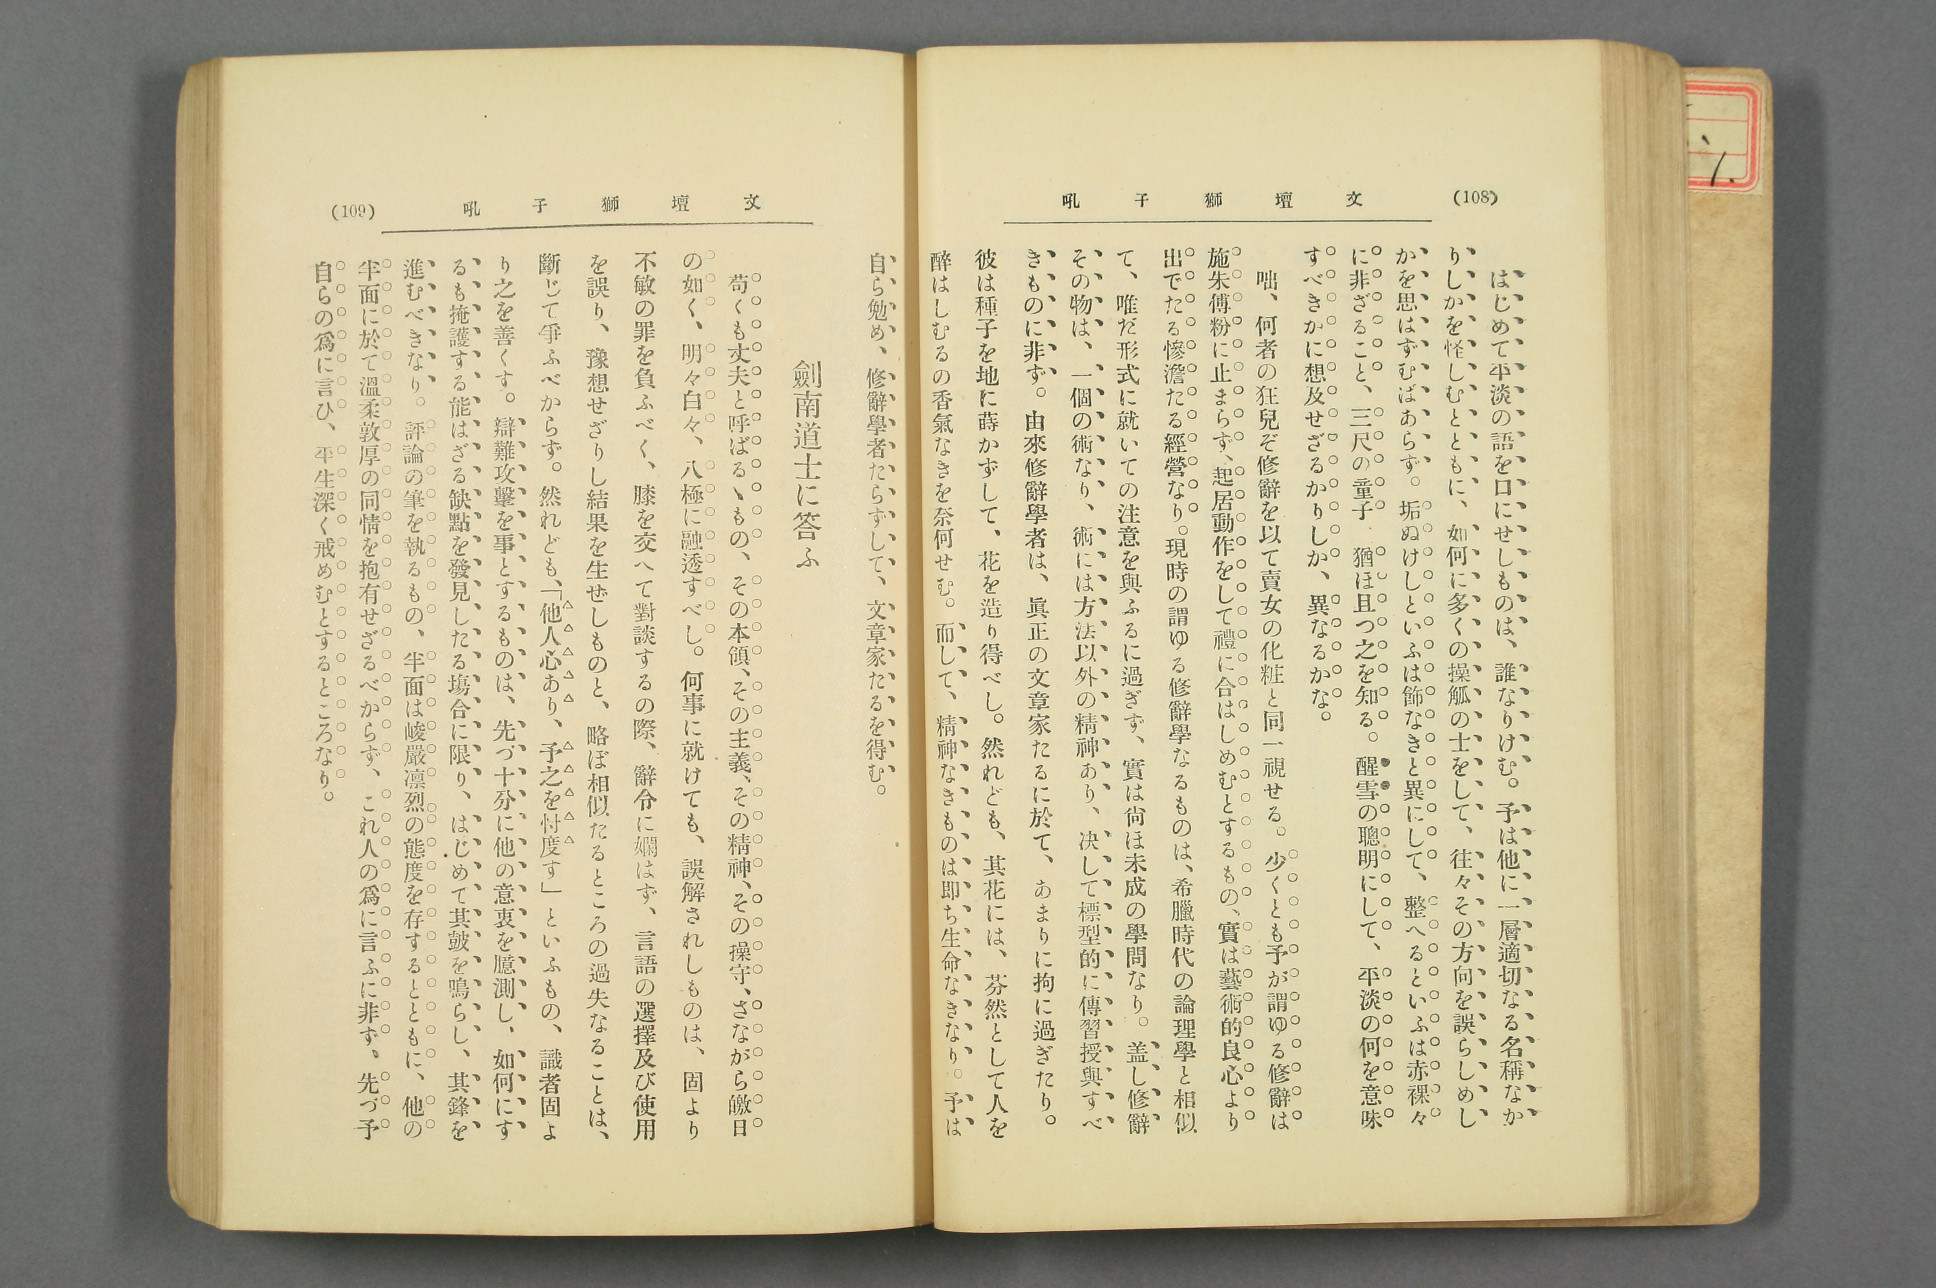 (108)
文壇獅子吼
はじめて平淡の語を口にせしものは、誰なりけむ。予は他に一層適切なる名稱なか
りしかを怪しむとともに、如何に多くの操觚の士をして、往々その方向を誤らしめし
かを思はずむばあらず。垢ぬけしといふは飾なきと異にして、整へるといふは赤裸々
に非ざること、三尺の童子、猶ほ且つ之を知る。醒雪の聰明にして、平淡の何を意味
すべきかに想及せざるかりしか、異なるかな。
咄、何者の狂兒ぞ修辭を以て賣女の化粧と同一視せる。少くとも予が謂ゆる修辭は
施朱傅粉に止まらず、起居動作をして禮に合はしめむとするもの、實は藝術的良心より
出でたる慘澹たる經營なり。現時の謂ゆる修辭學なるものは、希臘時代の論理學と相似
て、唯だ形式に就いての注意を與ふるに過ぎず、實は尙ほ未成の學問なり。盖し修辭
その物は、一個の術なり、術には方法以外の精神あり、决して標型的に傳習授與すべ
きものに非ず。由來修辭學者は、眞正の文章家たるに於て、あまりに拘に過ぎたり。
彼は種子を地に蒔かずして、花を造り得べし。然れども、其花には、芬然として人を
醉はしむるの香氣なきを奈何せむ。而して、精神なきものは即ち生命なきなり。予は
(109)
文壇獅子吼
自ら勉め、修辭學者たらずして、文章家たるを得む。
劍南道士に答ふ
苟くも丈夫と呼ばるゝもの、その本領、その主義、その精神、その操守、さながら皦日
の如く、明々白々、八極に融透すべし。何事に就けても、誤解されしものは、固より
不敏の罪を負ふべく、膝を交へて對談するの際、辭令に嫺はず、言語の選擇及び使用
を誤り、豫想せざりし結果を生ぜしものと、略ぼ相似たるところの過失なることは、
斷じて爭ふべからず。然れども、「他人心あり、予之を忖度す」といふもの、識者固よ
り之を善くす。辯難攻擊を事とするものは、先づ十分に他の意衷を臆測し、如何にす
るも掩護する能はざる缺點を發見したる塲合に限り、はじめて其皷を鳴らし、其鋒を
進むべきなり。評論の筆を執るもの、半面は峻嚴凛烈の態度を存するとともに、他の
半面に於て溫柔敦厚の同情を抱有せざるべからず、これ人の爲に言ふに非ず、先づ予
自らの爲に言ひ、平生深く戒めむとするところなり。